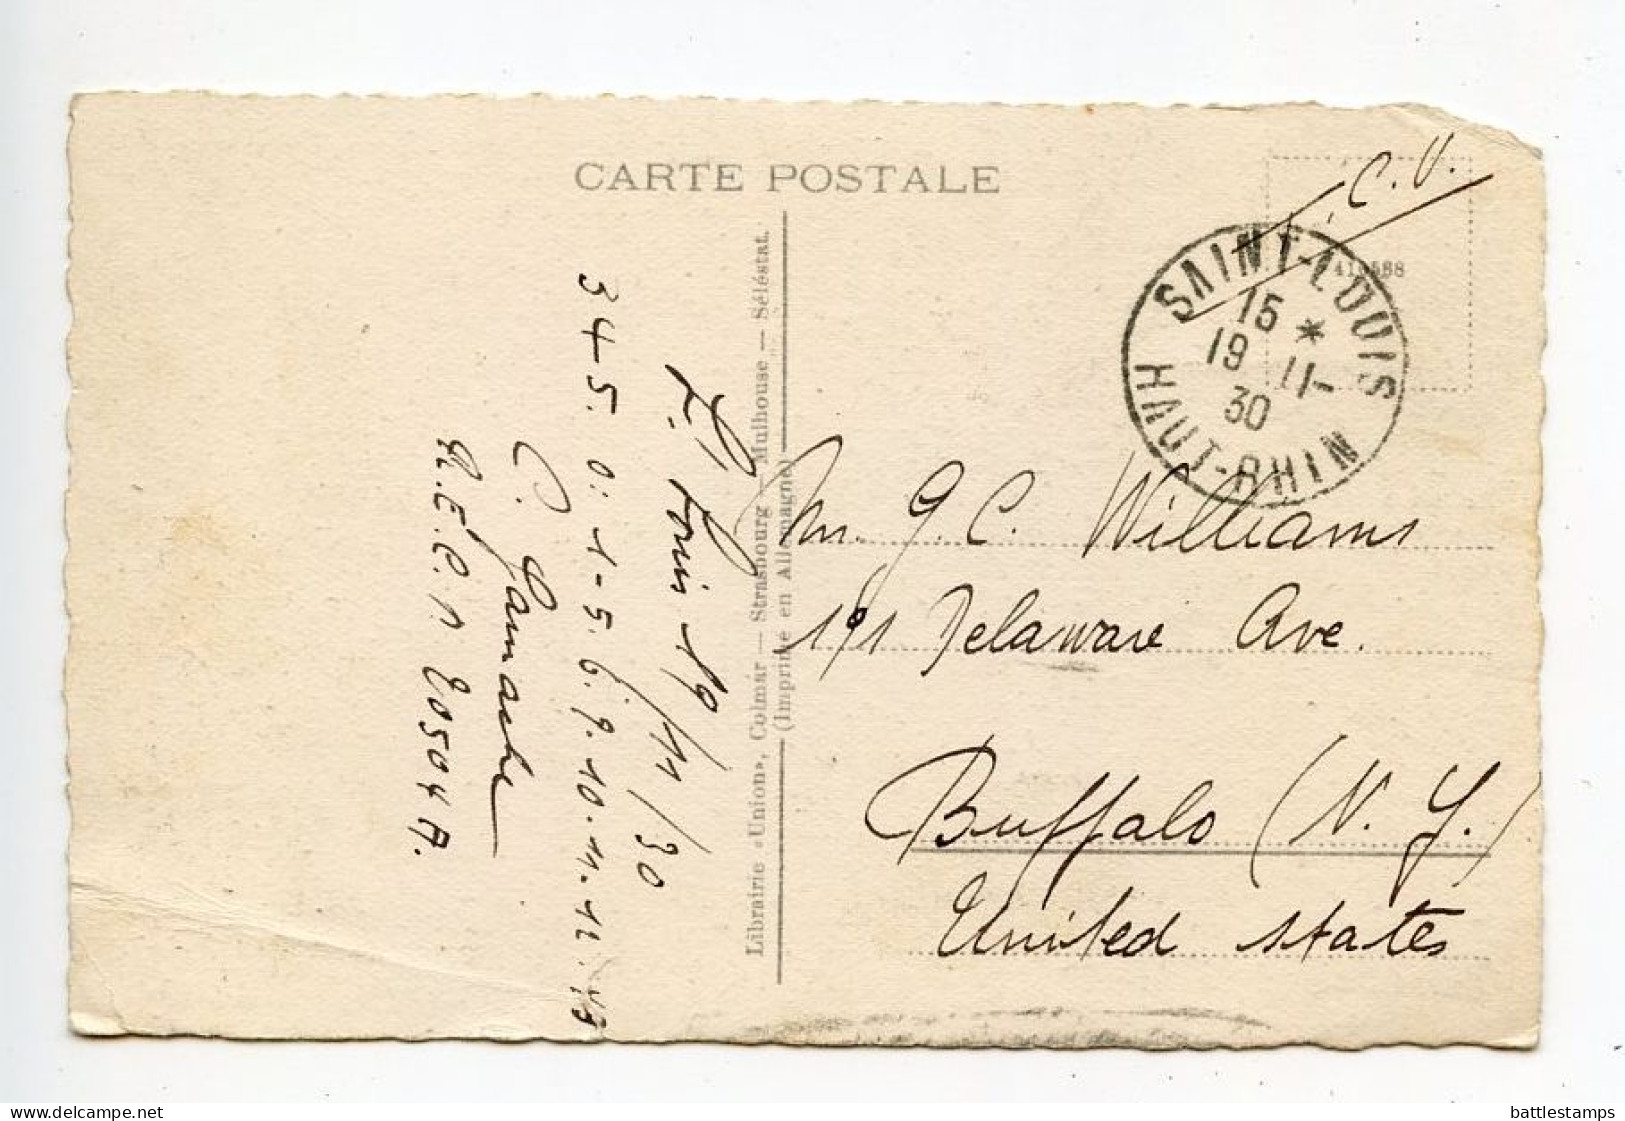 CARTE POSTALE
C.V.
SAINT-LOUIS
15 *
19 11-
30
HAUT-RHIN
St Louis 19/11/30
345.0:1-5.6.9.10.11.12.13
C. Gamache
R.E.C. 1 20504 A.
Librairie «Union», Colmar — Strasbourg — Mulhouse — Séléstat.
(Imprimé en Allemagne)
Mr. G. C. Williams
191 Delaware Ave.
Buffalo (N. Y.)
United States
www.delcampe.net
battlestamps